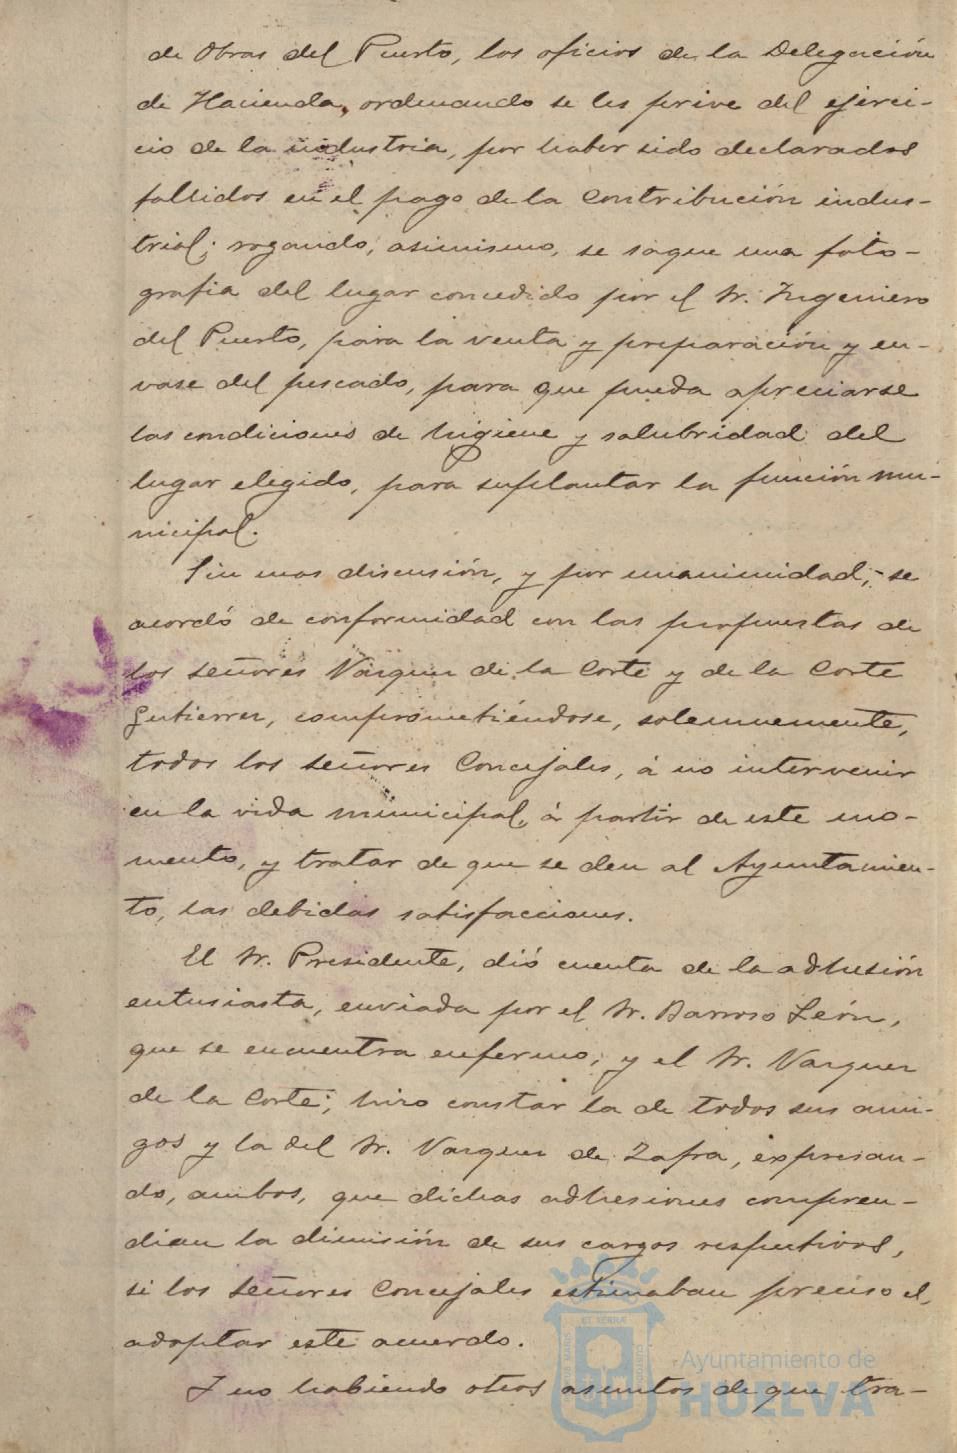 de Obras del Puerto, los oficios de la Delegación
de Hacienda, ordenando se les prive del ejerci-
cio de la industria, por haber sido declarados
fallidos en el pago de la Contribución indus-
trial; rogando, asimismo, se saque una foto-
grafia del lugar concedido por el Sr. Ingeniero
del Puerto, para la venta y preparación y en-
vase del pescado, para que pueda apreciarse
las condiciones de higiene y salubridad del
lugar elegido, para suplantar la función mu-
nicipal.
Sin mas discusión, y por unanimidad, se
acordó de conformidad con las propuestas de
los señores Vazquez de la Corte y de la Corte
Gutierrez, comprometiéndose, solemnemente,
todos los señores Concejales, á no intervenir
en la vida municipal, á partir de este mo-
mento, y tratar de que se den al Ayuntamien-
to, las debidas satisfacciones.
El Sr. Presidente, dió cuenta de la adhesión
entusiasta, enviada por el Sr. Barroso León,
que se encuentra enfermo; y el Sr. Vazquez
de la Corte; hizo constar la de todos sus ami-
gos y la del Sr. Vazquez de Zafra, expresan-
do, ambos, que dichas adhesiones compren-
dian la dimisión de sus cargos respectivos,
si los señores Concejales estimaban preciso el
adoptar este acuerdo.
Y no habiendo otros asuntos de que tra-
Ayuntamiento de
HUELVA